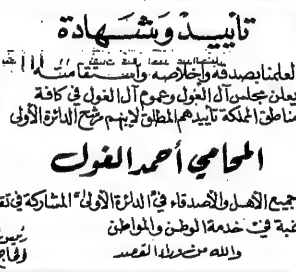 تأييد وشهادة
لعلمنا بصدقه وإخلاصه واستقامته
يعلن مجلس آل الغول وعموم آل الغول في كافة
مناطق المملكة تأييدهم المطلق لابنهم مرشح الدائرة الأولى
المحامي أحمد الغول
جميع الأهل والأصدقاء في "الدائرة الأولى" المشاركة في
في خدمة الوطن والمواطن
والله من وراء القصد